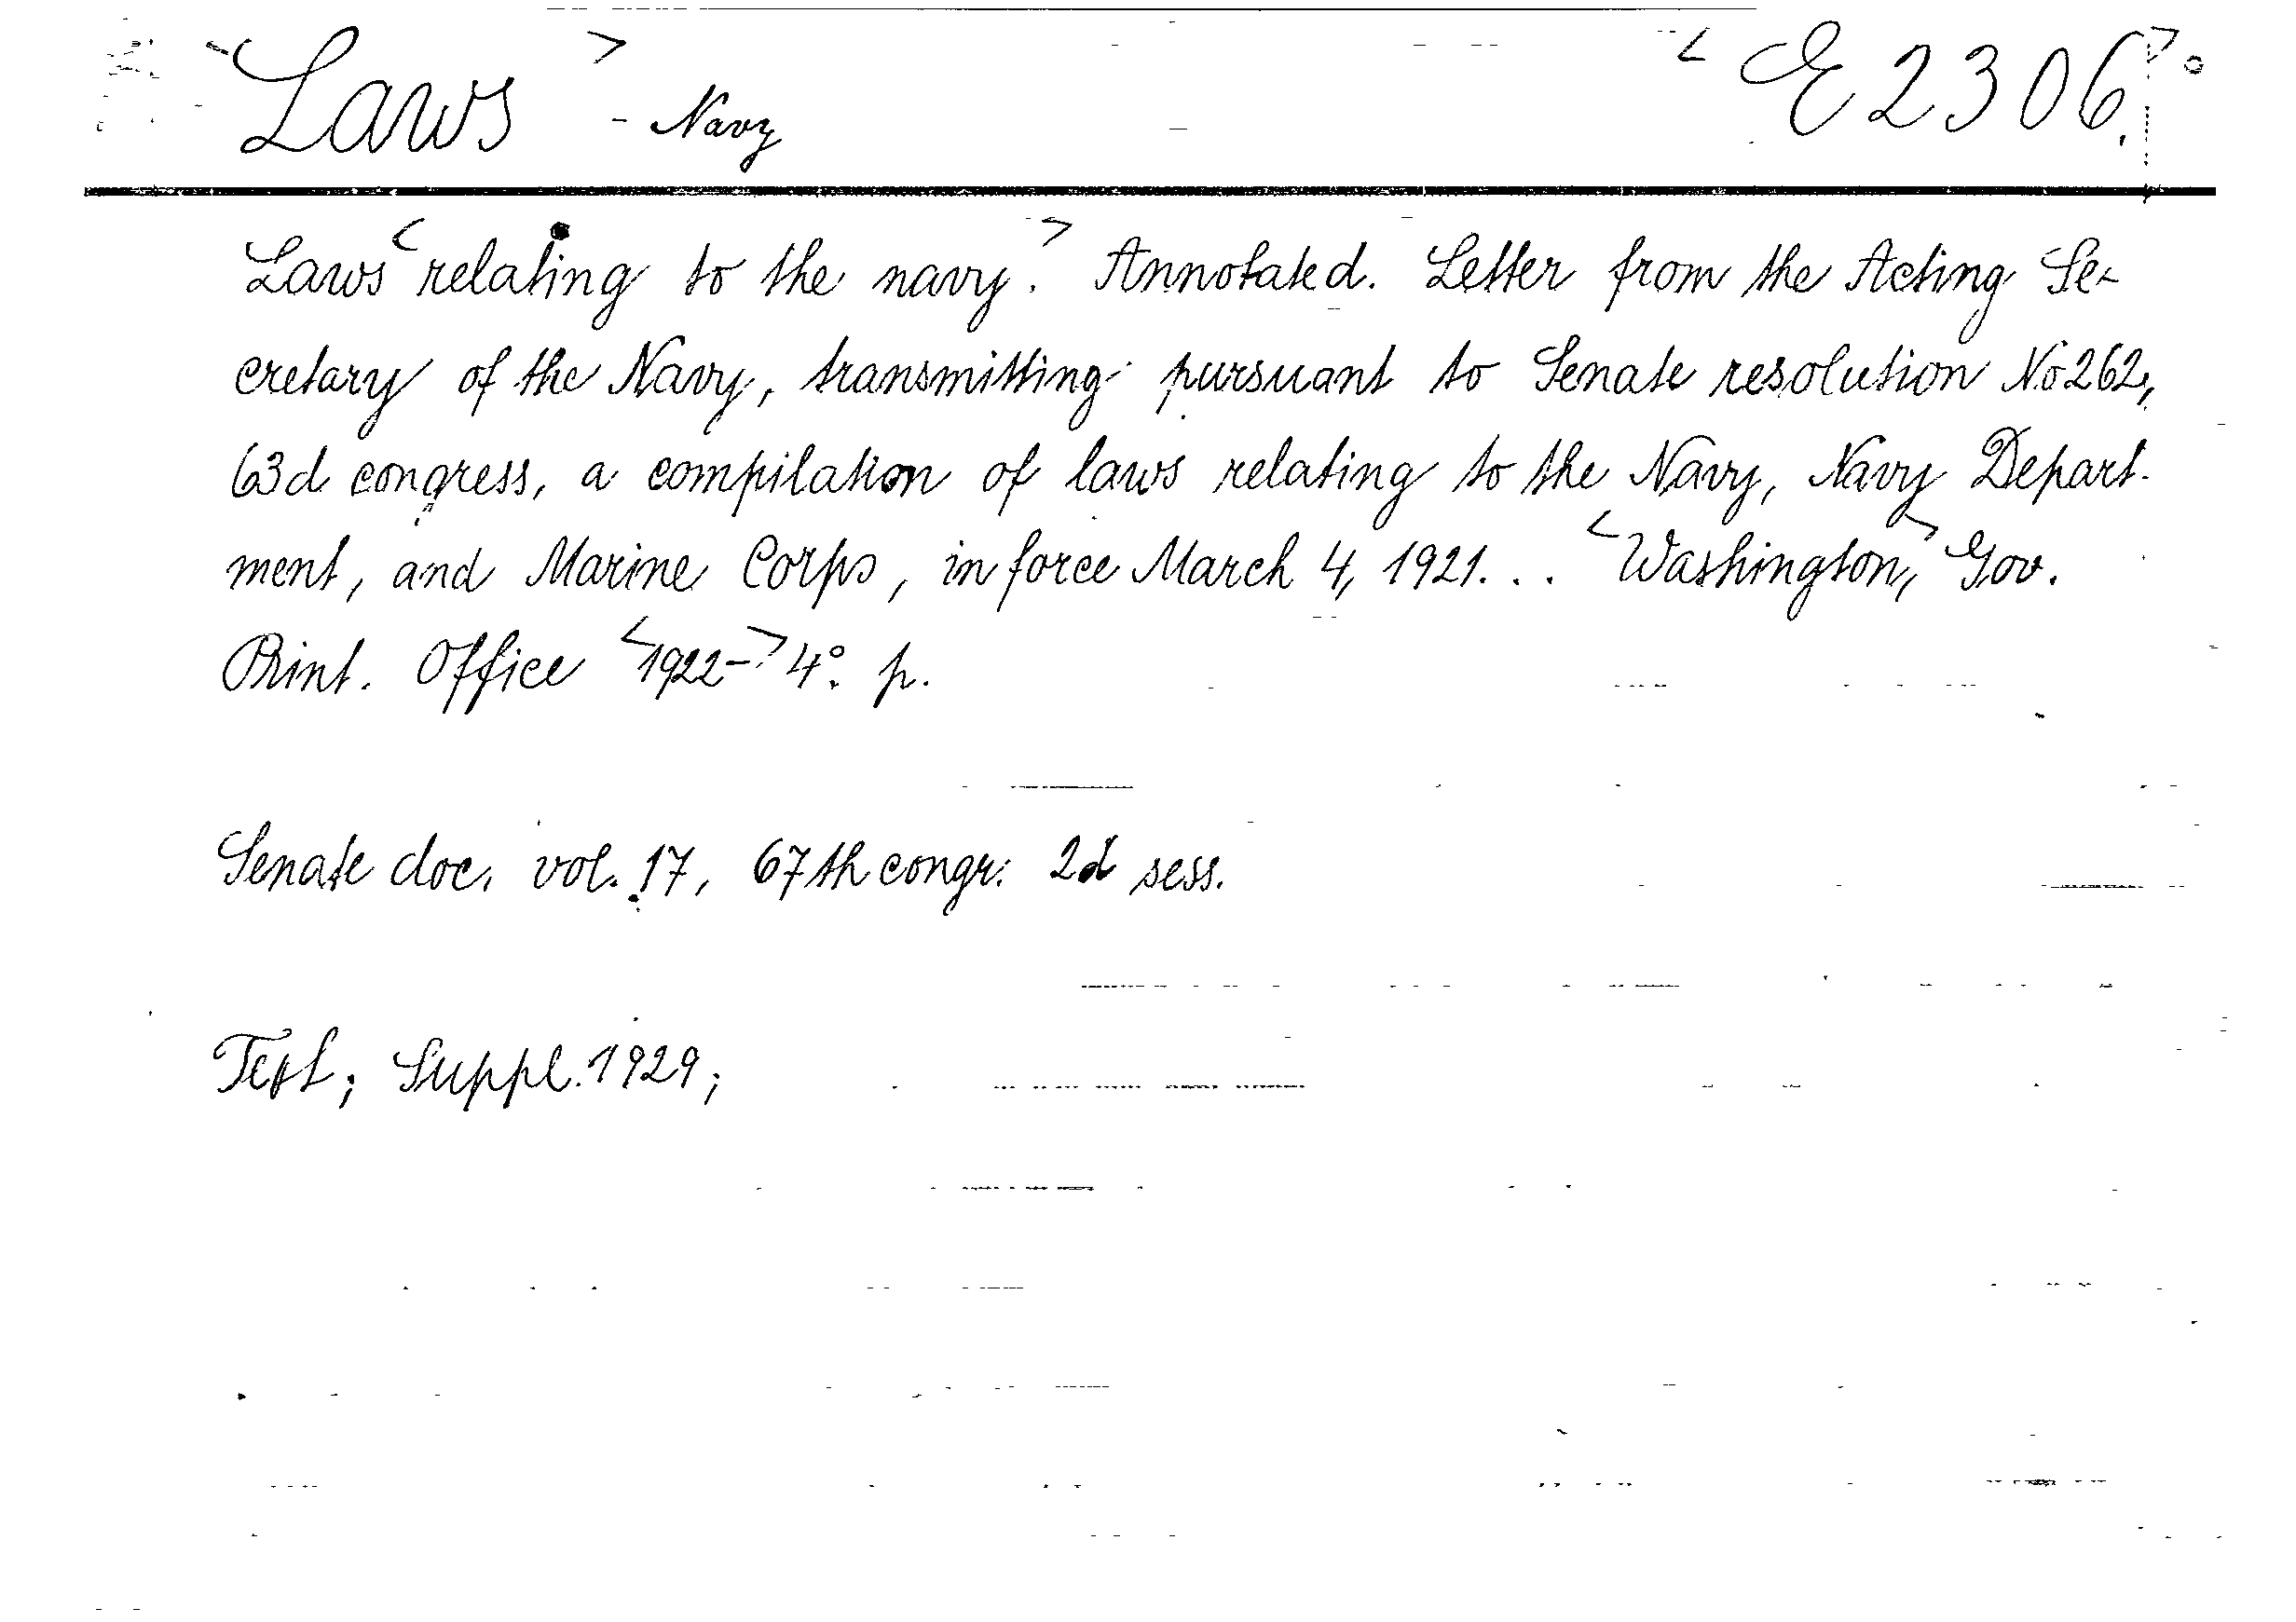 <Laws> - Navy <E 2306.>°
Laws <relating to the navy.> Annotated. Letter from the Acting Se-
cretary of the Navy, transmitting pursuant to Senate resolution No 262,
63d congress, a compilation of laws relating to the Navy, Navy Depart-
ment, and Marine Corps, in force March 4, 1921... <Washington,> Gov.
Print. Office <1922-> 4°. p.
Senate doc. vol. 17, 67th congr. 2d sess.
Text; Suppl. 1929;